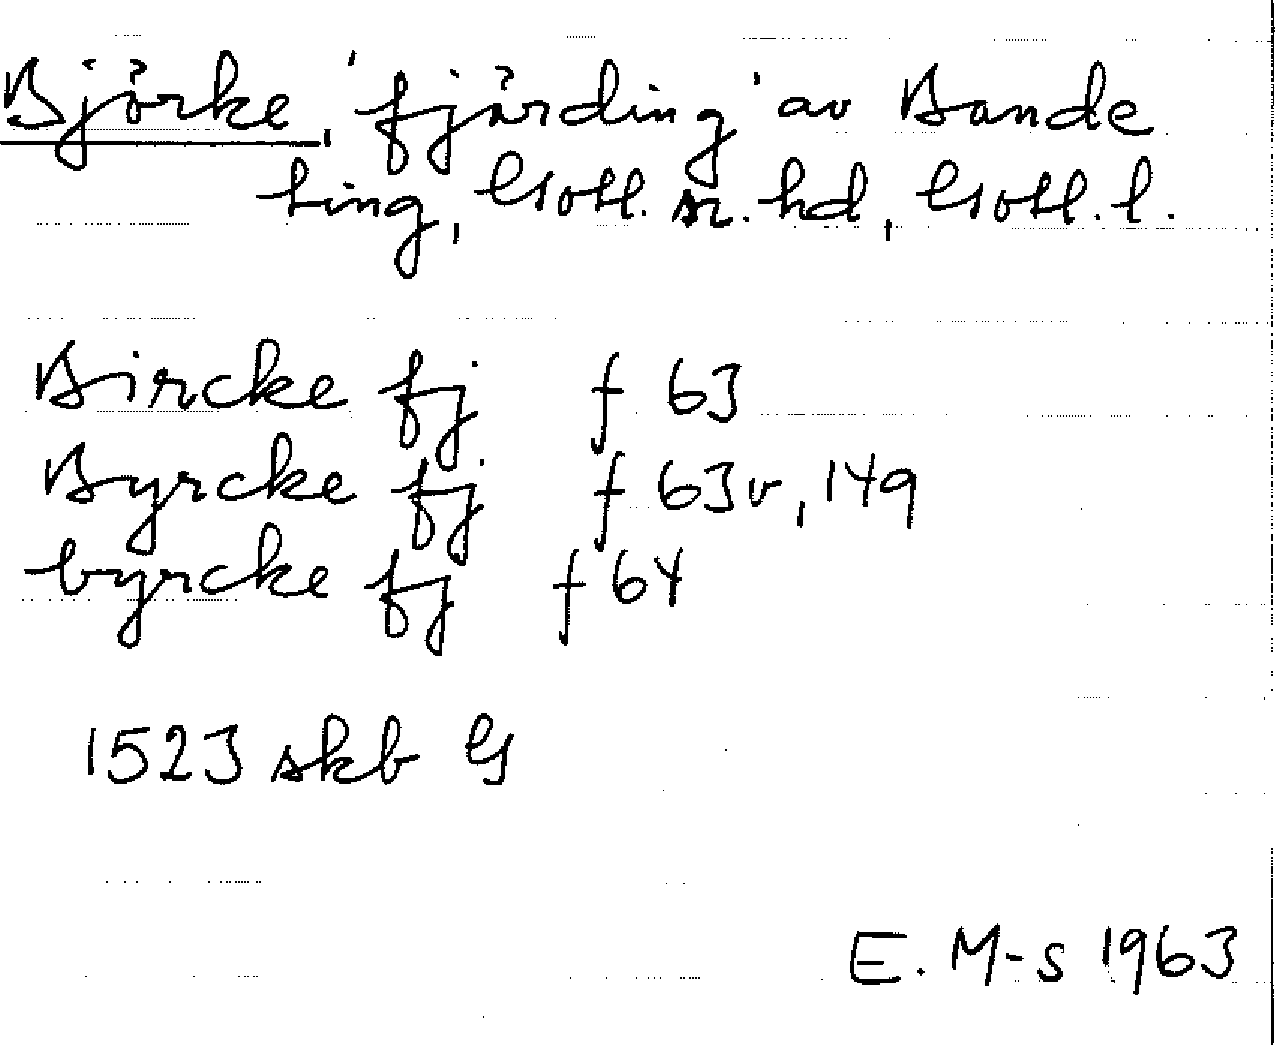 Björke, 'fjärding' av Bande
ting, Gotl. n. hd, Gotl. l.
Bircke fj f 63
Byrcke fj f 63v, 149
byrcke fj f 64
1523 skb G
E. M-s 1963